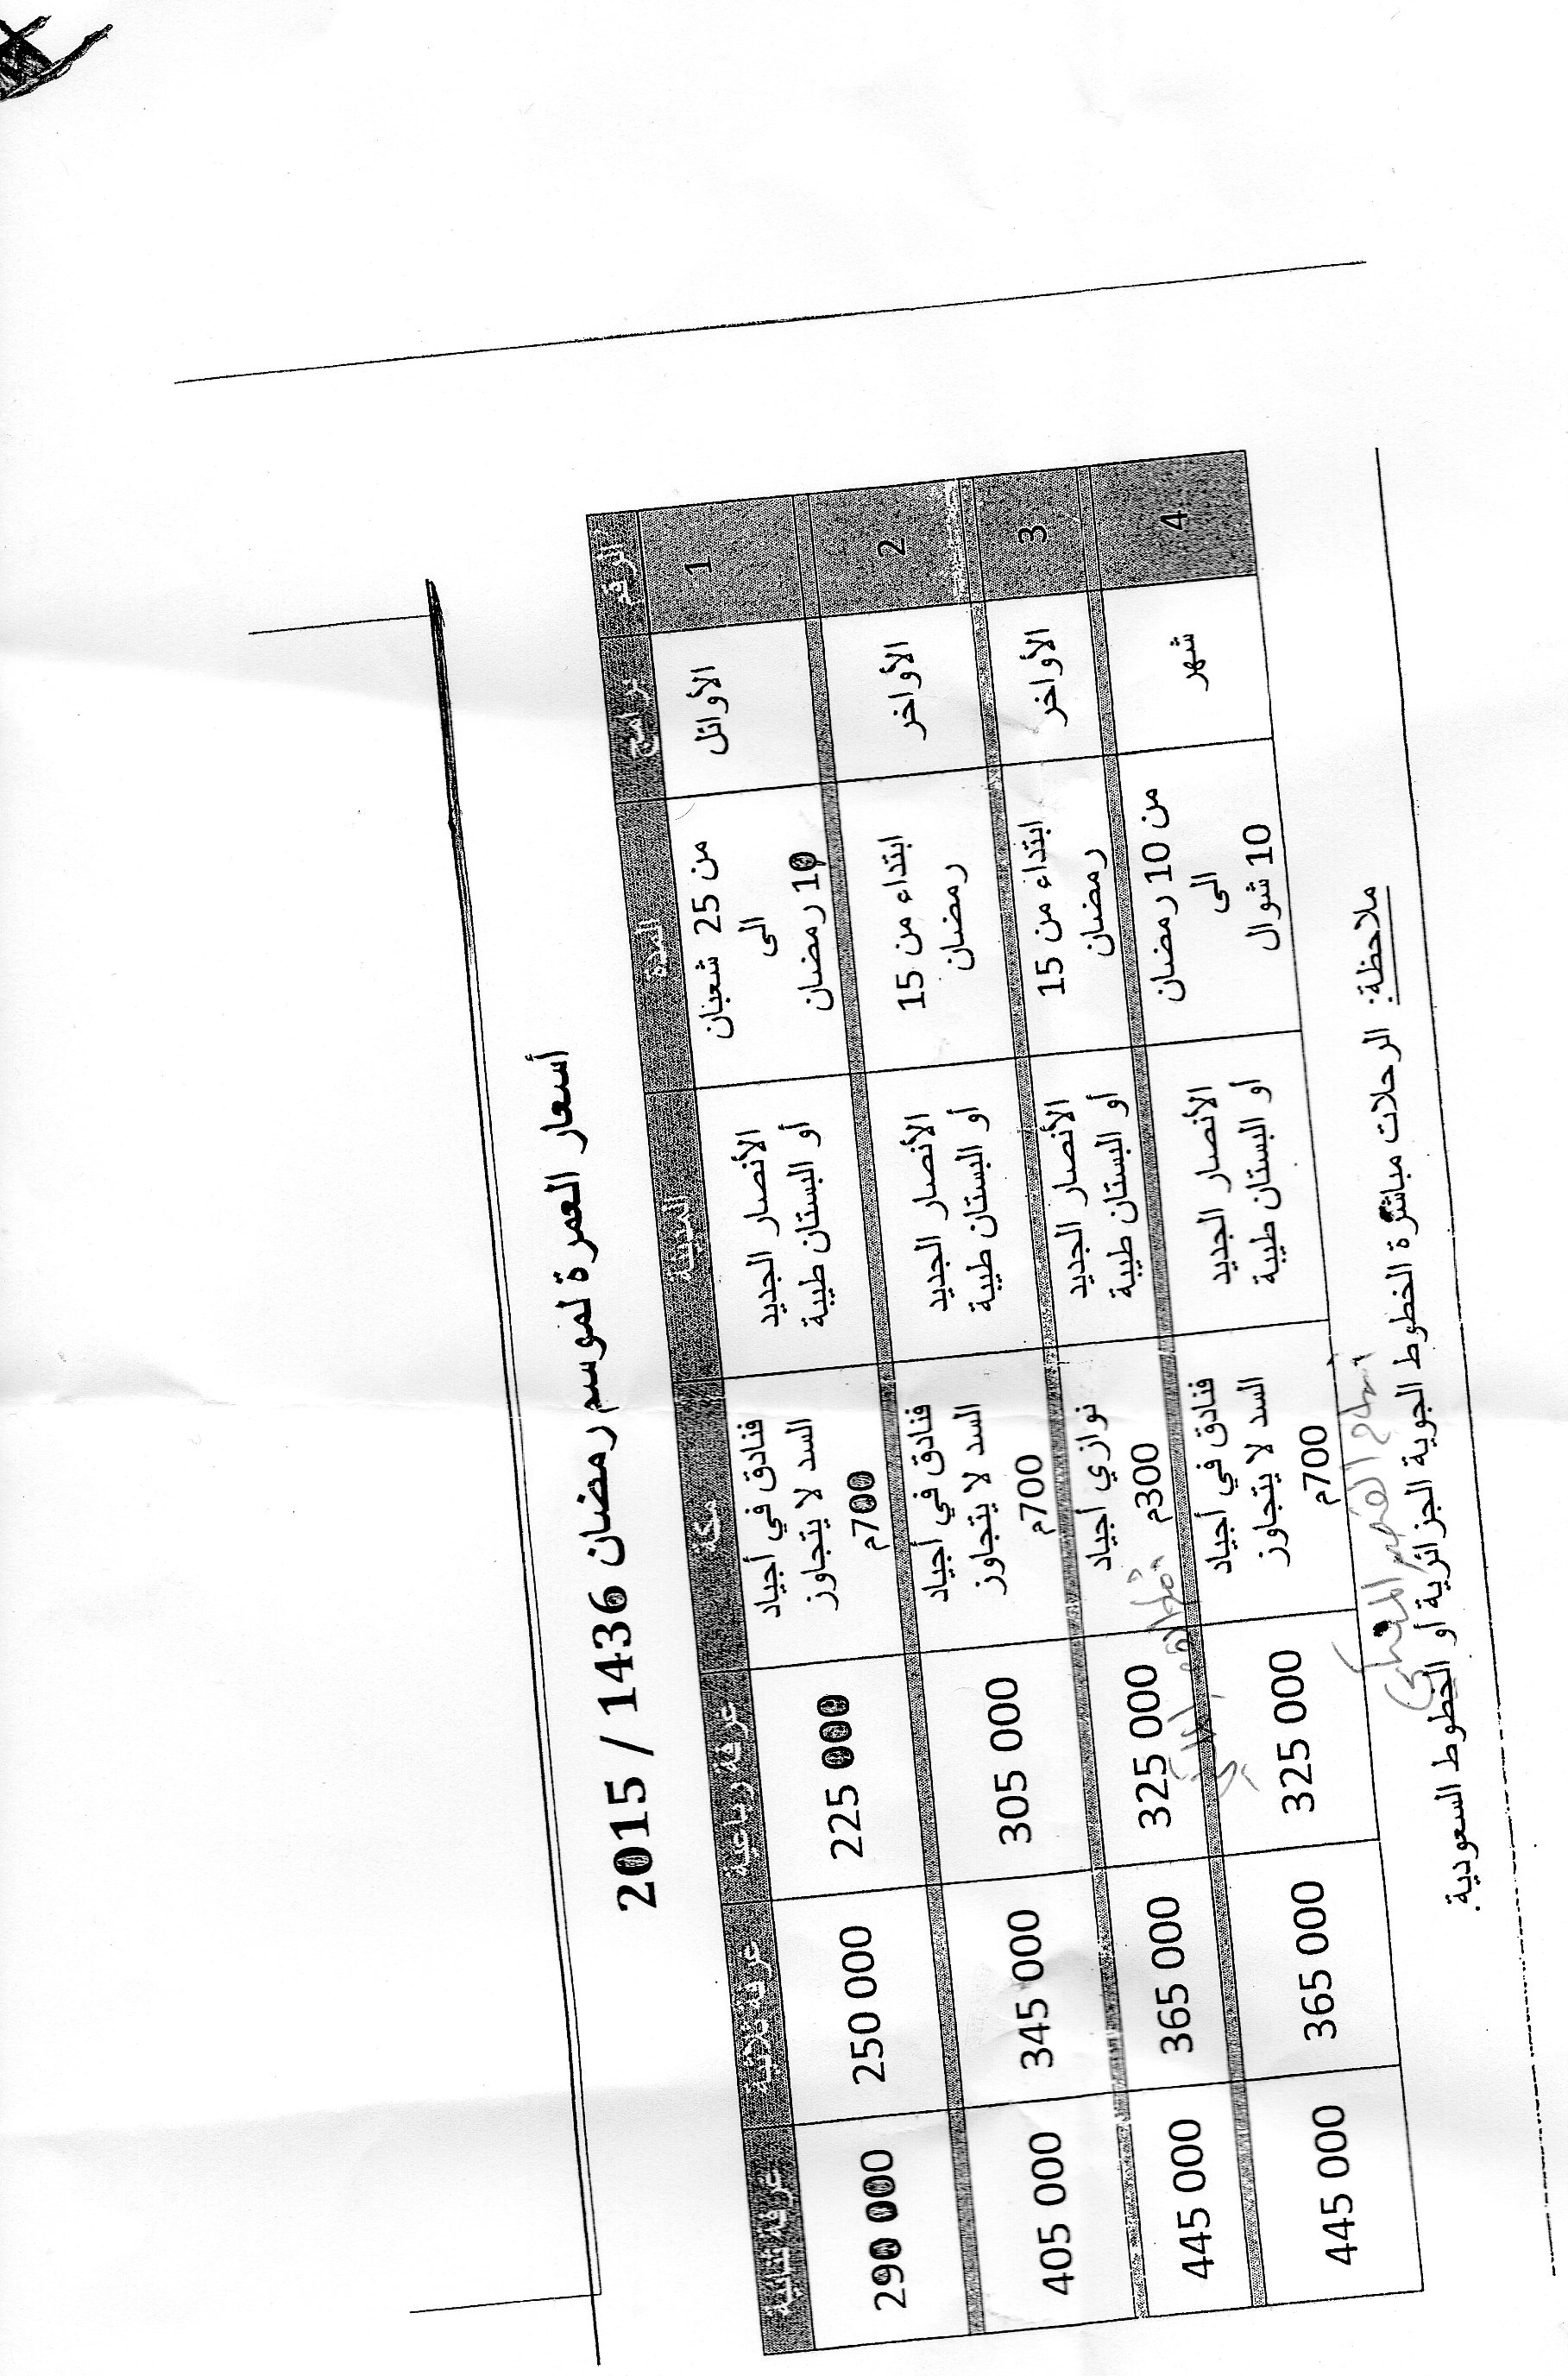 أسعار العمرة لموسم رمضان 1436 / 2015
الرقم برامج المدة المدينة مكة غرفة رباعية غرفة ثلاثية غرفة ثنائية
1 الأوائل من 25 شعبان الأنصار الجديد فنادق في أجياد 225 000 250 000 290 000
الى أو البستان طيبة السد لا يتجاوز
10 رمضان 700م
2 الأواخر ابتداء من 15 الأنصار الجديد فنادق في أجياد 305 000 345 000 405 000
رمضان أو البستان طيبة السد لا يتجاوز
700م
3 الأواخر ابتداء من 15 الأنصار الجديد نوازي أجياد 325 000 365 000 445 000
رمضان أو البستان طيبة 300م
4 شهر من 10 رمضان الأنصار الجديد فنادق في أجياد 325 000 365 000 445 000
الى أو البستان طيبة السد لا يتجاوز
10 شوال 700م
ملاحظة: الرحلات مباشرة الخطوط الجوية الجزائرية أو الخطوط السعودية.